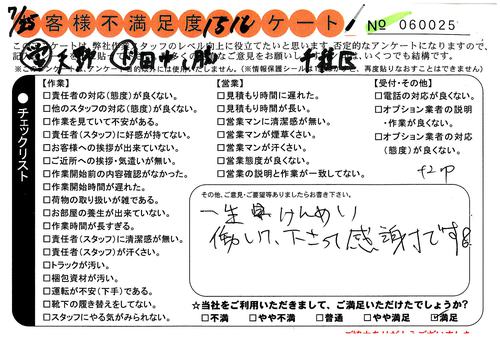 7/25
お客様不満足度アンケート
1512
№ 060025
このアンケートは、弊社作業スタッフのレベル向上に役立てたいと思います。否定的なアンケートになりますので、
はいくつでも結構です。
【作業】
□責任者の対応(態度)が良くない。
□他のスタッフの対応(態度)が良くない。
□作業を見ていて不安がある。
□責任者(スタッフ)に好感が持てない。
□お客様への挨拶が出来ていない。
□ご近所への挨拶・気遣いが無い。
□作業開始前の内容確認がなかった。
□作業開始時間が遅れた。
□荷物の取り扱いが雑である。
□お部屋の養生が出来ていない。
□作業時間が長すぎる。
□責任者(スタッフ)に清潔感が無い。
□責任者(スタッフ)が汗くさい。
□トラックが汚い。
□梱包資材が汚い。
□運転が不安(下手)である。
□靴下の履き替えをしてない。
□スタッフにやる気がみられない。
【営業】
□見積もり時間に遅れた。
□見積もり時間が長い。
□営業マンに清潔感が無い。
□営業マンが煙草くさい。
□営業マンが汗くさい。
□営業態度が良くない。
□営業の説明と作業が一致してない。
【受付・その他】
□電話の対応が良くない。
□オプション業者の説明
・作業が良くない。
□オプション業者の対応
(態度)が良くない。
●チェックリスト
その他、ご意見・ご要望等ありましたらお書き下さい。
一生けんめい
働いて下さって感謝です。
☆当社をご利用いただきまして、ご満足いただけたでしょうか?
□不満 □やや不満 □普通 □やや満足 ☑満足